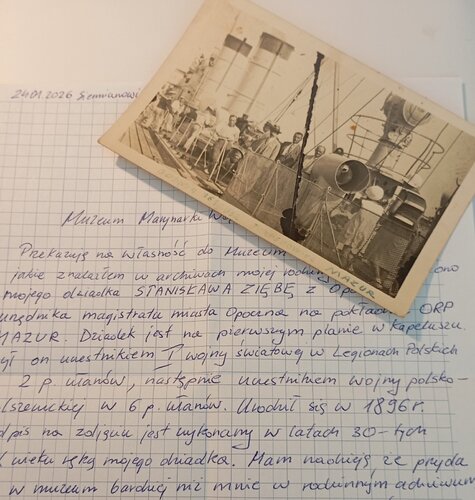 24.01.2026 Siemianowi
Muzeum Marynarki Wo
Przekazuję na własność do Muzeum
MAZUR
jakie znalazłem w archiwach mojej rodziny ono
mojego dziadka STANISŁAWA ZIĘBĘ z Opo
urzędnika magistratu miasta Opoczna na pokła ORP
MAZUR. Dziadek jest na pierwszym planie w kapeluszu
ył on uczestnikiem I wojny światowej w Legionach Polskich
2 p. ułanów, następnie uczestnikiem wojny polsko-
lszewickiej w 6 p. ułanów. Urodził się w 1896 r.
dpis na zdjęciu jest wykonany w latach 30-tych
wieku ręką mojego dziadka. Mam nadzieję że przyda
w muzeum bardziej niż mnie w rodzinnym archiwum